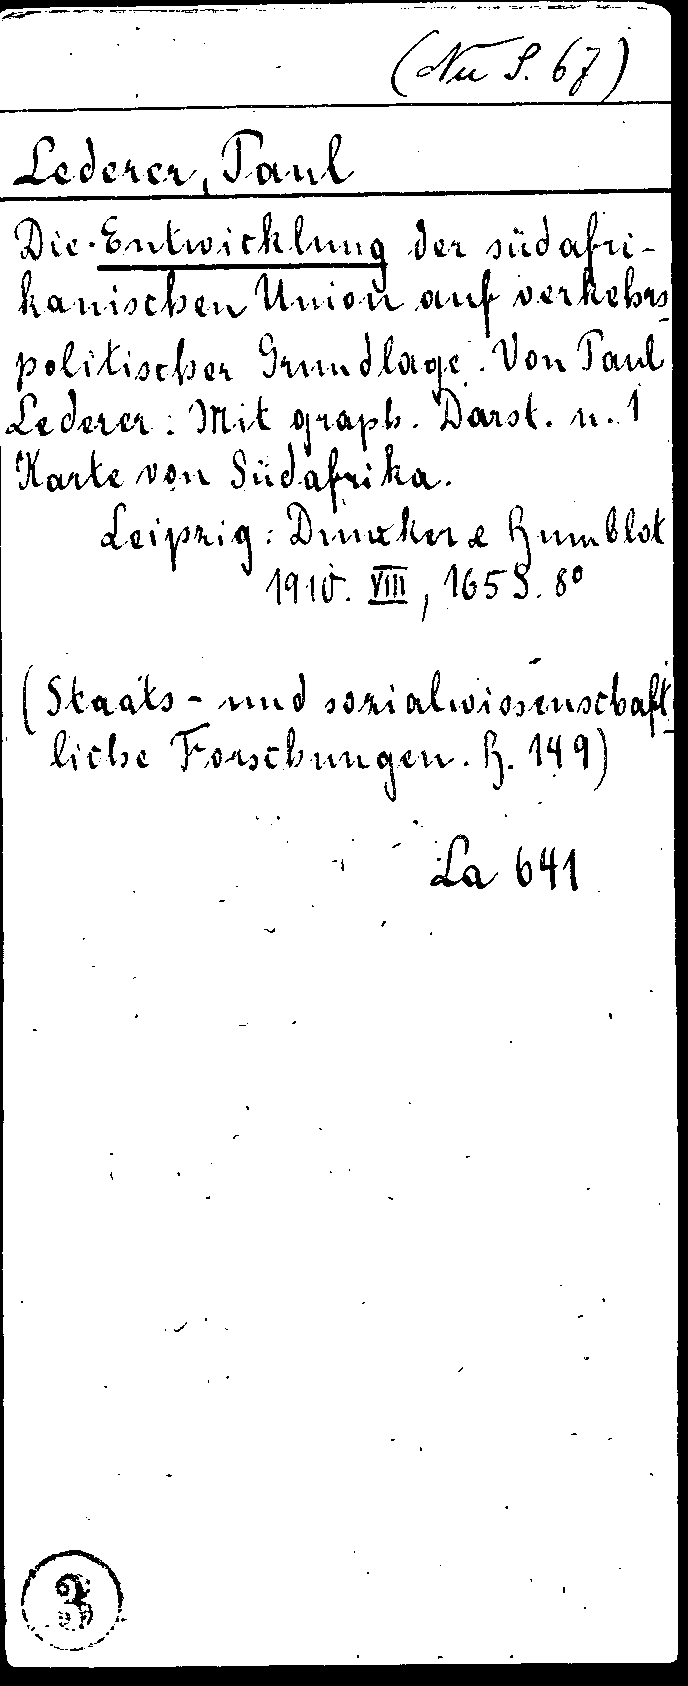 (Nu S. 67)
Lederer, Paul
Die Entwicklung der südafri-
kanischen Union auf verkehrs-
politischer Grundlage. Von Paul
Lederer. Mit graph. Darst. u. 1
Karte von Südafrika.
Leipzig: Duncker & Humblot
1910. VIII, 165 S. 8°
(Staats- und sozialwissenschaft-
liche Forschungen. H. 149)
La 641
3